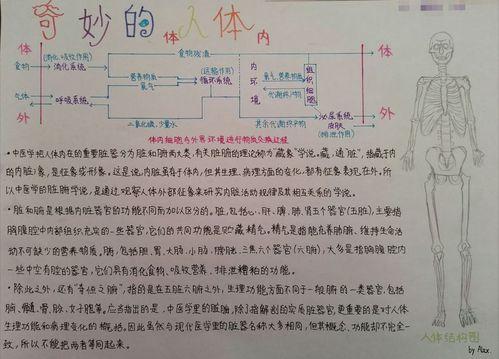 奇妙的人体
体 内 体
食物 (消化、吸收作用) 消化系统 食物残渣
营养物质 (运输作用) 循环系统
氧气
内环境 氧气、营养物质 组织细胞
代谢终产物
气体 呼吸系统
二氧化碳、少量水 其余代谢终产物 泌尿系统 皮肤
(排泄作用)
外 外
体内细胞与外界环境进行物质交换过程
·中医学把人体内在的重要脏器分为脏和腑两大类,有关脏腑的理论称为“藏象”学说。藏,通“脏”,指藏于内
的内脏;象,是征象或形象。这是说,内脏虽存于体内,但其生理、病理方面的变化,都有征象表现在外。所
以中医学的脏腑学说,是通过观察人体外部征象来研究内脏活动规律及其相互关系的学说。
·脏和腑是根据内脏器官的功能不同而加以区分的。脏,包括心、肝、脾、肺、肾五个器官(五脏),主要指
胸腹腔中内部组织充实的一些器官,它们的共同功能是贮藏精气。精气是指能充养脏腑、维持生命活
动不可缺少的营养物质。腑,包括胆、胃、大肠、小肠、膀胱、三焦六个器官(六腑),大多是指胸腹腔内
一些中空有腔的器官,它们具有消化食物,吸收营养、排泄糟粕的功能。
·除此之外,还有“奇恒之腑”,指的是在五脏六腑之外,生理功能方面不同于一般腑的一类器官,包括
脑、髓、骨、脉、女子胞等。应当指出的是,中医学里的脏腑,除了指解剖的实质脏器官,更重要的是对人体
生理功能和病理变化的概括。因此虽然与现代医学里的脏器名称大多相同,但其概念、功能却不完全一
致,所以不能把两者等同起来。
人体结构图
by